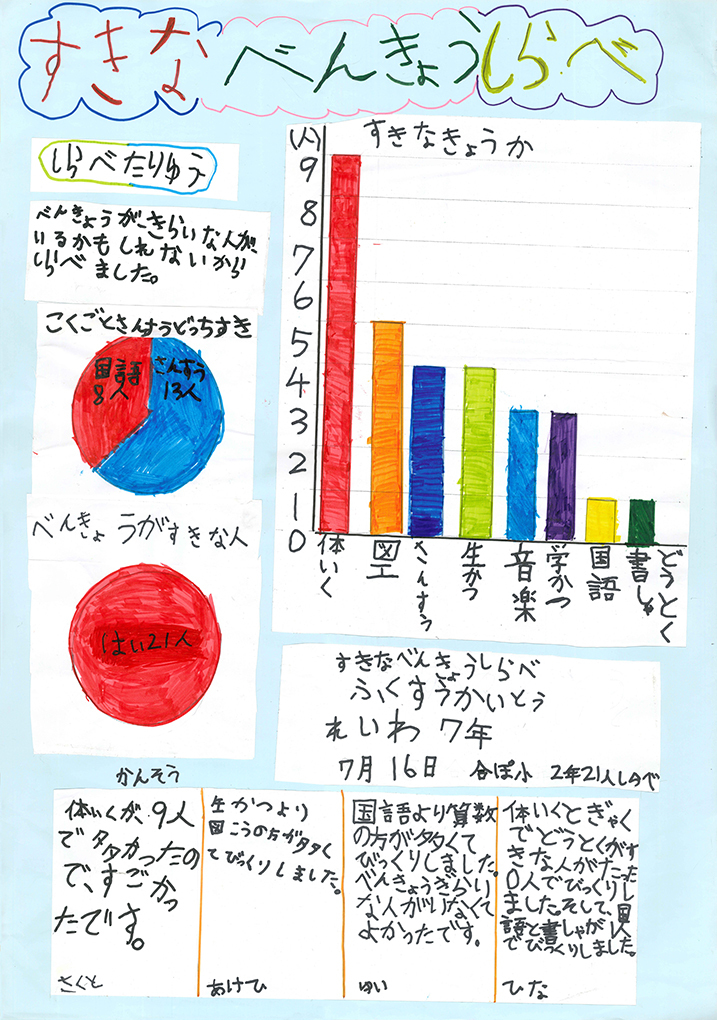 すきなべんきょうしらべ
しらべたりゆう
べんきょうがきらいな人が、
いるかもしれないから
しらべました。
こくごとさんすうどっちすき
国語
8人
さんすう
13人
べんきょうがすきな人
はい21人
すきなきょうか
(人)
9
8
7
6
5
4
3
2
1
0
体いく
図工
さんすう
生かつ
音楽
学かつ
国語
書しゃ
どうとく
すきなべんきょうしらべ
ふくすうかいとう
れいわ7年
7月16日 合ぽ小 2年21人しらべ
かんそう
体いくが、9人
で多かったの
で、すごかっ
たです。
さくと
生かつより
図こうの方が多く
てびっくりしました。
あけひ
国語より算数
の方が多くて
びっくりしました。
べんきょうぎらい
な人がいなくて
よかったです。
ゆい
体いくとぎゃく
でどうとくがす
きな人がたった
0人でびっくりし
ました。そして、国
語と書しゃが1人
でびっくりしました。
ひな